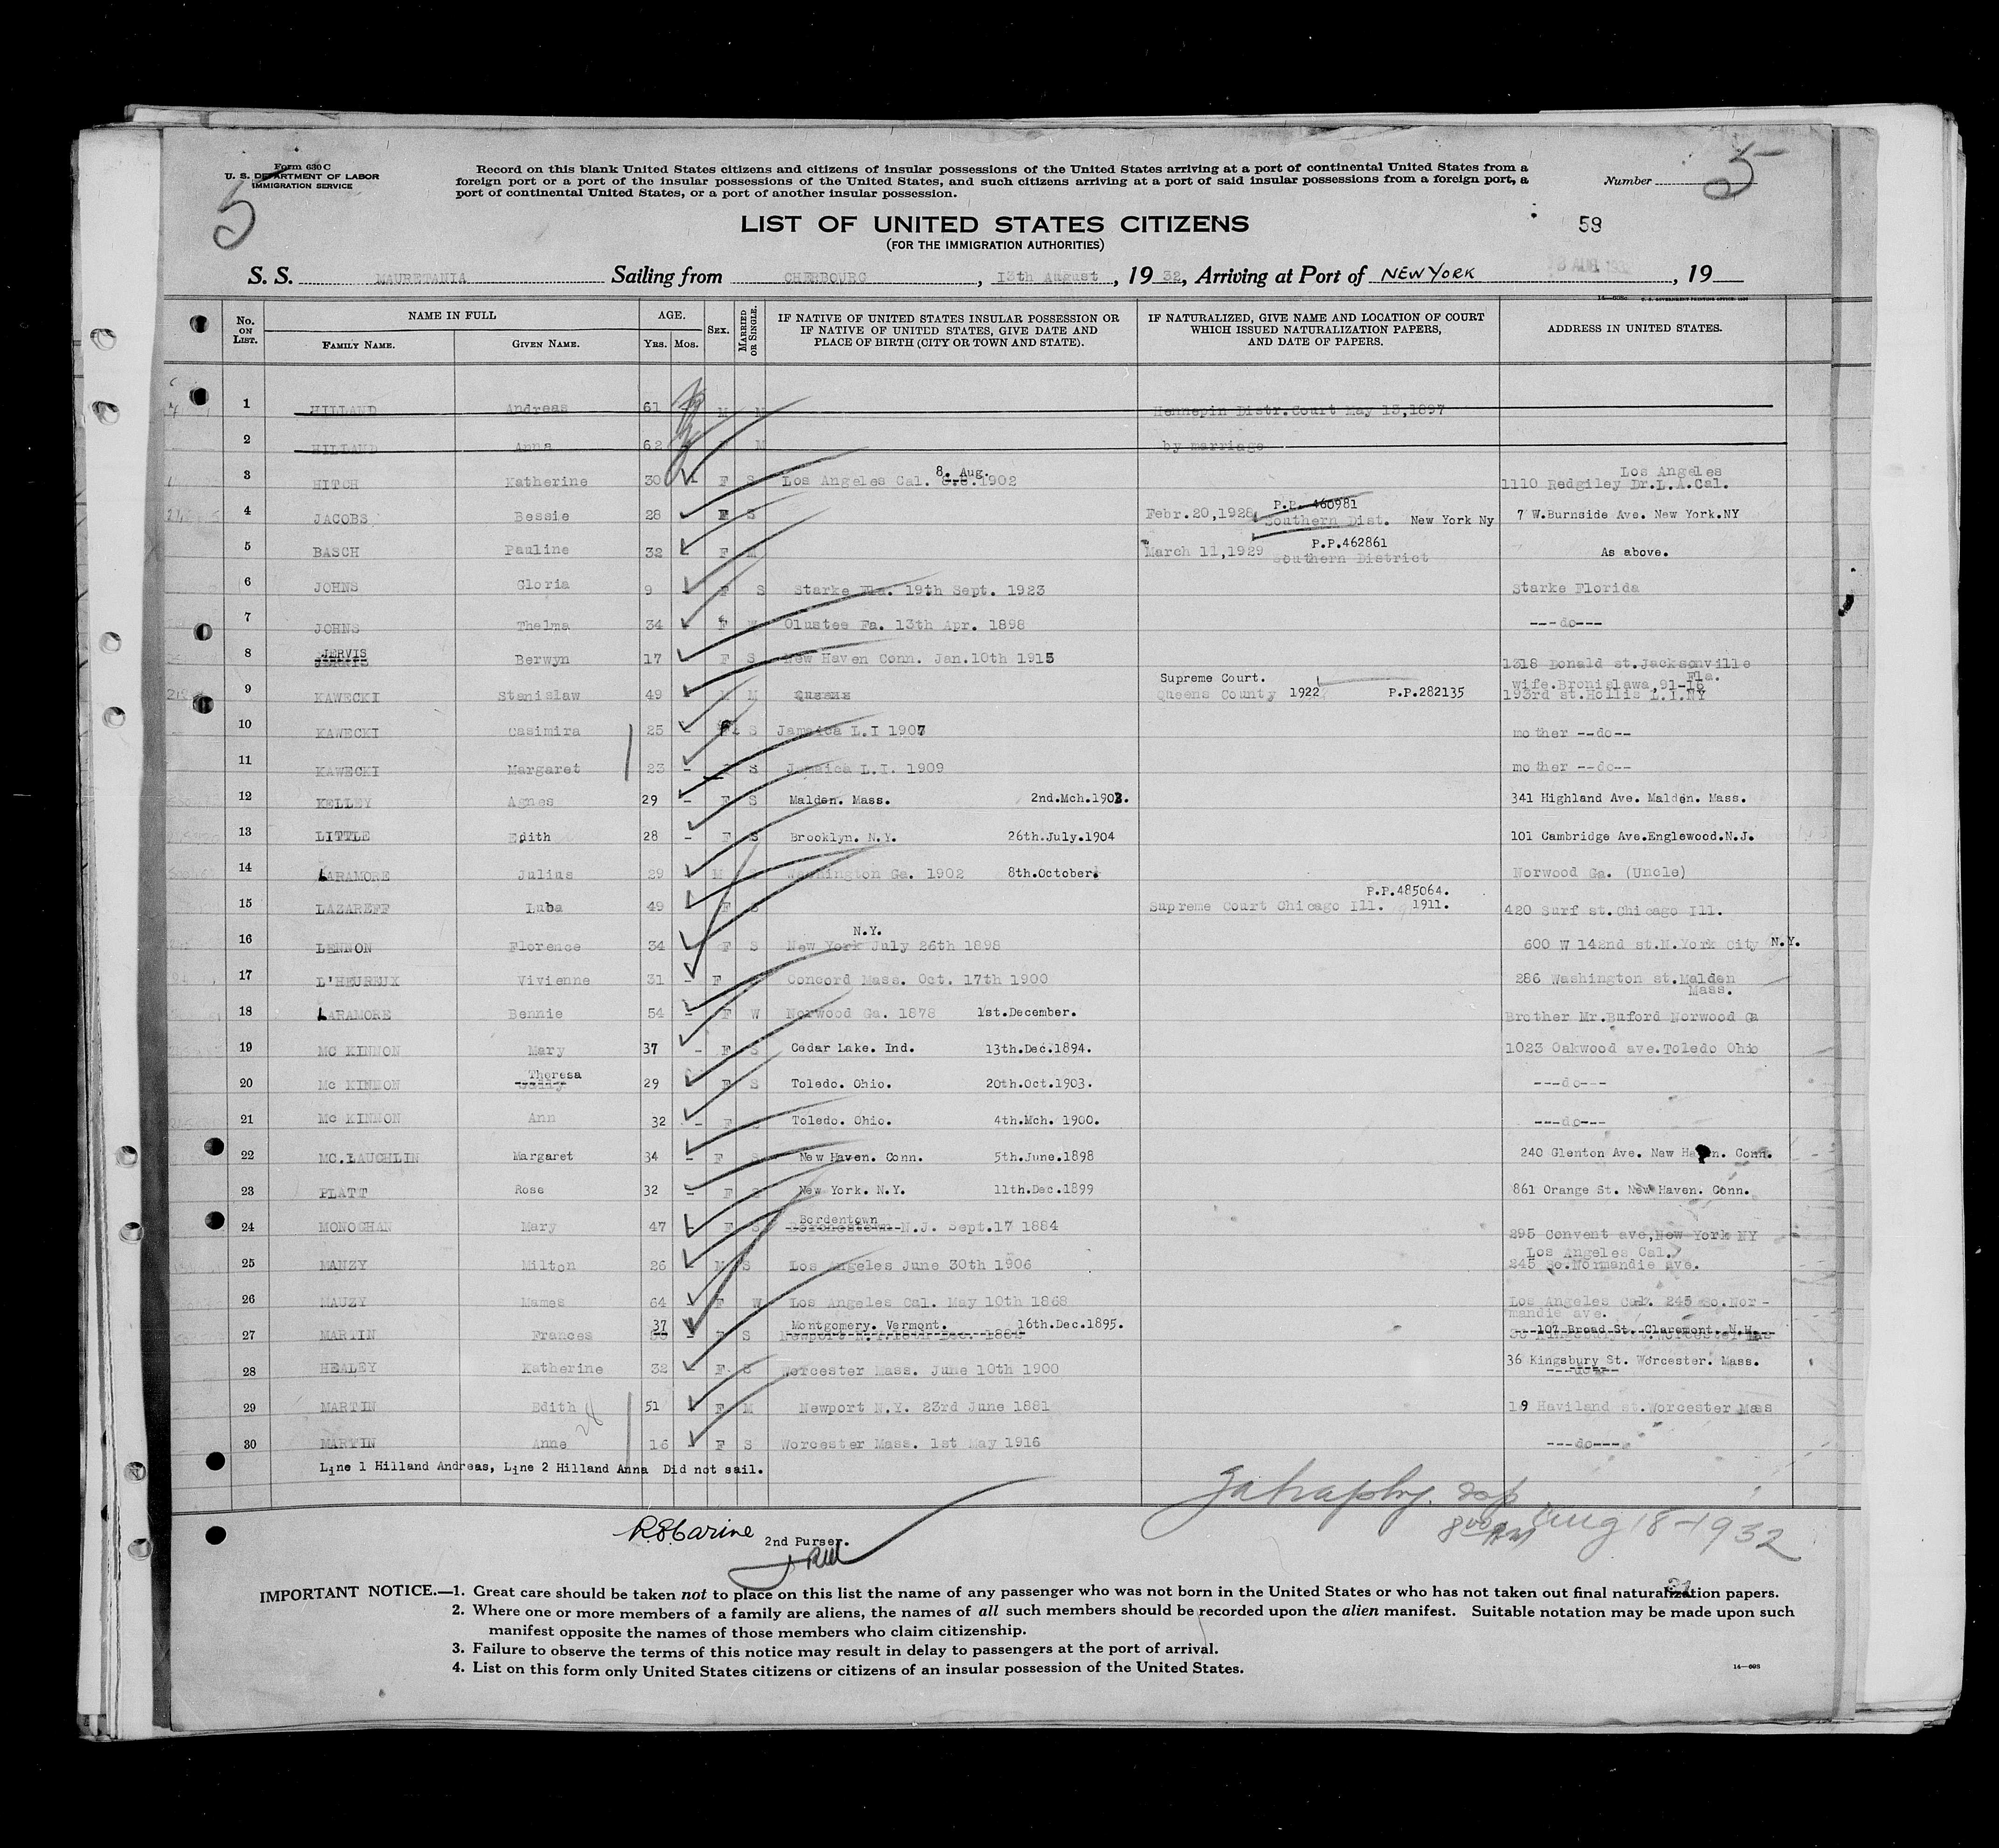 Form 630 C
U. S. DEPARTMENT OF LABOR
IMMIGRATION SERVICE
5
Record on this blank United States citizens and citizens of insular possessions of the United States arriving at a port of continental United States from a
foreign port or a port of the insular possessions of the United States, and such citizens arriving at a port of said insular possessions from a foreign port, a
port of continental United States, or a port of another insular possession.
Number 5
LIST OF UNITED STATES CITIZENS
(FOR THE IMMIGRATION AUTHORITIES)
59
S. S. MAURETANIA Sailing from CHERBOURG, 13th August, 19 32, Arriving at Port of NEW YORK, 19
No. ON LIST. NAME IN FULL FAMILY NAME. GIVEN NAME. AGE. YRS. MOS. SEX. MARRIED OR SINGLE. IF NATIVE OF UNITED STATES INSULAR POSSESSION OR IF NATIVE OF UNITED STATES, GIVE DATE AND PLACE OF BIRTH (CITY OR TOWN AND STATE). IF NATURALIZED, GIVE NAME AND LOCATION OF COURT WHICH ISSUED NATURALIZATION PAPERS, AND DATE OF PAPERS. ADDRESS IN UNITED STATES.
1 HILLAND Andreas 61 M M Hennepin Distr.Court May 13,1897
2 HILLAND Anna 62 F M by marriage
3 HITCH Katherine 30 F S Los Angeles Cal. 8. Aug. 1902 Los Angeles 1110 Redgiley Dr.L.A.Cal.
4 JACOBS Bessie 28 F S Febr.20,1928 P.P. 460981 Southern Dist. New York Ny 7 W.Burnside Ave. New York.NY
5 BASCH Pauline 32 F M March 11,1929 P.P.462861 Southern District As above.
6 JOHNS Gloria 9 F S Starke Fla. 19th Sept. 1923 Starke Florida
7 JOHNS Thelma 34 F W Olustee Fa. 13th Apr. 1898 ---do---
8 JERVIS Berwyn 17 F S New Haven Conn. Jan.10th 1915 1318 Donald st.Jacksonville Fla.
9 KAWECKI Stanislaw 49 M M Queens Supreme Court. Queens County 1922 P.P.282135 wife.Bronislawa,91-16 193rd st.Hollis L.I.NY
10 KAWECKI Casimira 25 - F S Jamaica L.I 1907 mother --do--
11 KAWECKI Margaret 23 - F S Jamaica L.I. 1909 mother --do--
12 KELLEY Agnes 29 - F S Malden. Mass. 2nd.Mch.1903. 341 Highland Ave. Malden. Mass.
13 LITTLE Edith 28 - F S Brooklyn. N.Y. 26th.July.1904 101 Cambridge Ave.Englewood.N.J.
14 LARAMORE Julius 29 M Washington Ga. 1902 8th.October. Norwood Ga. (Uncle)
15 LAZAREFF Luba 49 F S Supreme Court Chicago Ill. P.P.485064. 1911. 420 Surf st.Chicago Ill.
16 LENNON Florence 34 F S New York N.Y. July 26th 1898 600 W 142nd st.N.York City N.Y.
17 L'HEUREUX Vivienne 31 - F Concord Mass. Oct. 17th 1900 286 Washington st.Malden Mass.
18 LARAMORE Bennie 54 - F W Norwood Ga. 1878 1st.December. Brother Mr.Buford Norwood Ga
19 MC KINNON Mary 37 - F S Cedar Lake. Ind. 13th.Dec.1894. 1023 Oakwood ave.Toledo Ohio
20 Mc KINNON Theresa 29 F S Toledo. Ohio. 20th.Oct.1903. ---do---
21 Mc KINNON Ann 32 - F Toledo. Ohio. 4th.Mch. 1900. ---do---
22 MC.LAUGHLIN Margaret 34 - F S New Haven. Conn. 5th.June.1898 240 Glenton Ave. New Haven. Conn.
23 PLATT Rose 32 - F S New York. N.Y. 11th.Dec.1899 861 Orange St. New Haven. Conn.
24 MONOGHAN Mary 47 - F S Bordentown N.J. Sept.17 1884 295 Convent ave,New York NY
25 MANZY Milton 26 - M S Los Angeles June 30th 1906 Los Angeles Cal. 245 So.Normandie ave.
26 MAUZY Mames 64 F W Los Angeles Cal. May 10th 1868 Los Angeles Cal. 245 So.Nor-mandie ave.
27 MARTIN Frances 37 - F S Montgomery. Vermont. 16th.Dec.1895. 107 Broad St. Claremont. N.H.
28 HEALEY Katherine 32 F S Worcester Mass. June 10th 1900 36 Kingsbury St. Worcester. Mass.
29 MARTIN Edith 51 F M Newport N.Y. 23rd June 1881 19 Haviland st.Worcester Mass
30 MARTIN Anne 16 F S Worcester Mass. 1st May 1916 ---do---
Line 1 Hilland Andreas, Line 2 Hilland Anna Did not sail.
8 00 AM Aug 18-1932
2nd Purser.
IMPORTANT NOTICE.—1. Great care should be taken not to place on this list the name of any passenger who was not born in the United States or who has not taken out final naturalization papers.
2. Where one or more members of a family are aliens, the names of all such members should be recorded upon the alien manifest. Suitable notation may be made upon such
manifest opposite the names of those members who claim citizenship.
3. Failure to observe the terms of this notice may result in delay to passengers at the port of arrival.
4. List on this form only United States citizens or citizens of an insular possession of the United States.
14—698